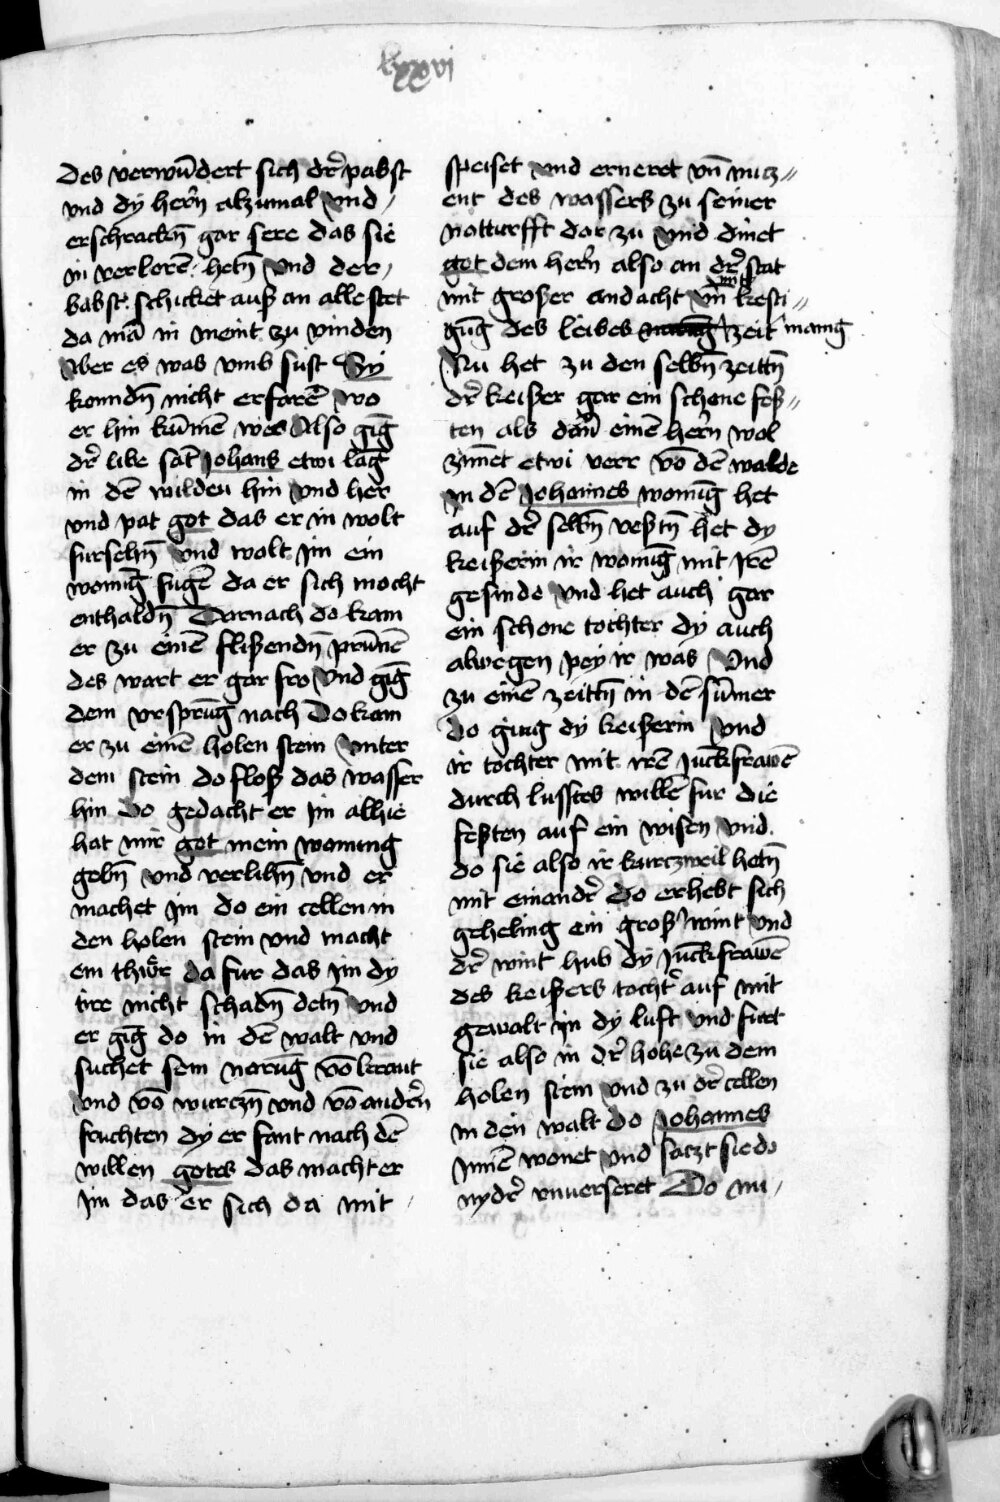 lxxxvi
des verwūdert sich dr̄ pabst
vnd dy her̄n alzumal vnd /
erschrackn̄ gar sere das sie
in verlorē hetn̄ vnd der /
babst schicket auß an alle stet
da mā in meint zu vinden
Aber es was vmb sust Sy
konndn̄ nicht erfarē wo
er hin kūmen wer Also gīg
dr̄ libe sāt Johans etwi lāg
in dē wilden hin vnd her
vnd pat got das er in wolt
fursehn̄ vnd wolt im ein
wonūg fugē da er sich mocht
enthaldn̄ Darnach do kam
er zu einē flißendn̄ prūnē
des wart er gar fro vnd gīg
dem vrsprūg nach Do kam
er zu einē holen stein vnter
dem stein do floß das wasser
hin Do gedacht er im alhie
hat mir got mein wonung
gebn̄ vnd verlihn̄ vnd er
machet im do ein cellen in
den holen stein vnd macht
ein thuͤr da fur das im dy
tire nicht schadn̄ detn̄ vnd
er gīg do in dē walt vnd
suchet sein narūg vō kraut
vnd vō wurczn̄ vnd vō andr̄n
fruchten dy er fant nach dē
willen gotes das macht er
im das er sich da mit
speiset vnd erneret vn̄ nucz //
ent des wassers zu seiner
notturfft dar zu vnd dinet
got dem her̄n also an dr̄ stat
mit großer andacht vn̄ mit kesti //
gūg des leibes zeit manig
Nu het zu den selbn̄ zeittn̄
dr̄ keißer gar ein schone feß //
ten als dān einē her̄n wol
zimet etwi verr vō dē walde
in dē Johannes wonūg het
auf dr̄ selbn̄ veßtn̄ het dy
keißerin ir wonūg mit irē
gesinde vnd het auch gar
ein schone tochter dy auch
alwegen pey ir was Vnd
zu einē zeittn̄ in dē sūmer
do ging dy keißerin vnd
ir tochter mit irē juckfrawē
durch lusstes willē fur die
feßten auf ein wisen vnd
do sie also ir kurczweil hetn̄
mit einandr̄ do erhebt sich
geheling ein groß wint vnd
dr̄ wint hub dy juckfrawē
des keißers tochtr̄ auf mit
gewalt in dy luft vnd furt
sie also in dr̄ hohe zu dem
holen stein vnd zu dr̄ cellen
in den walt do Johannes
innē wonet vnd saczt sie do
nydr̄ vnuerseret Do nu /